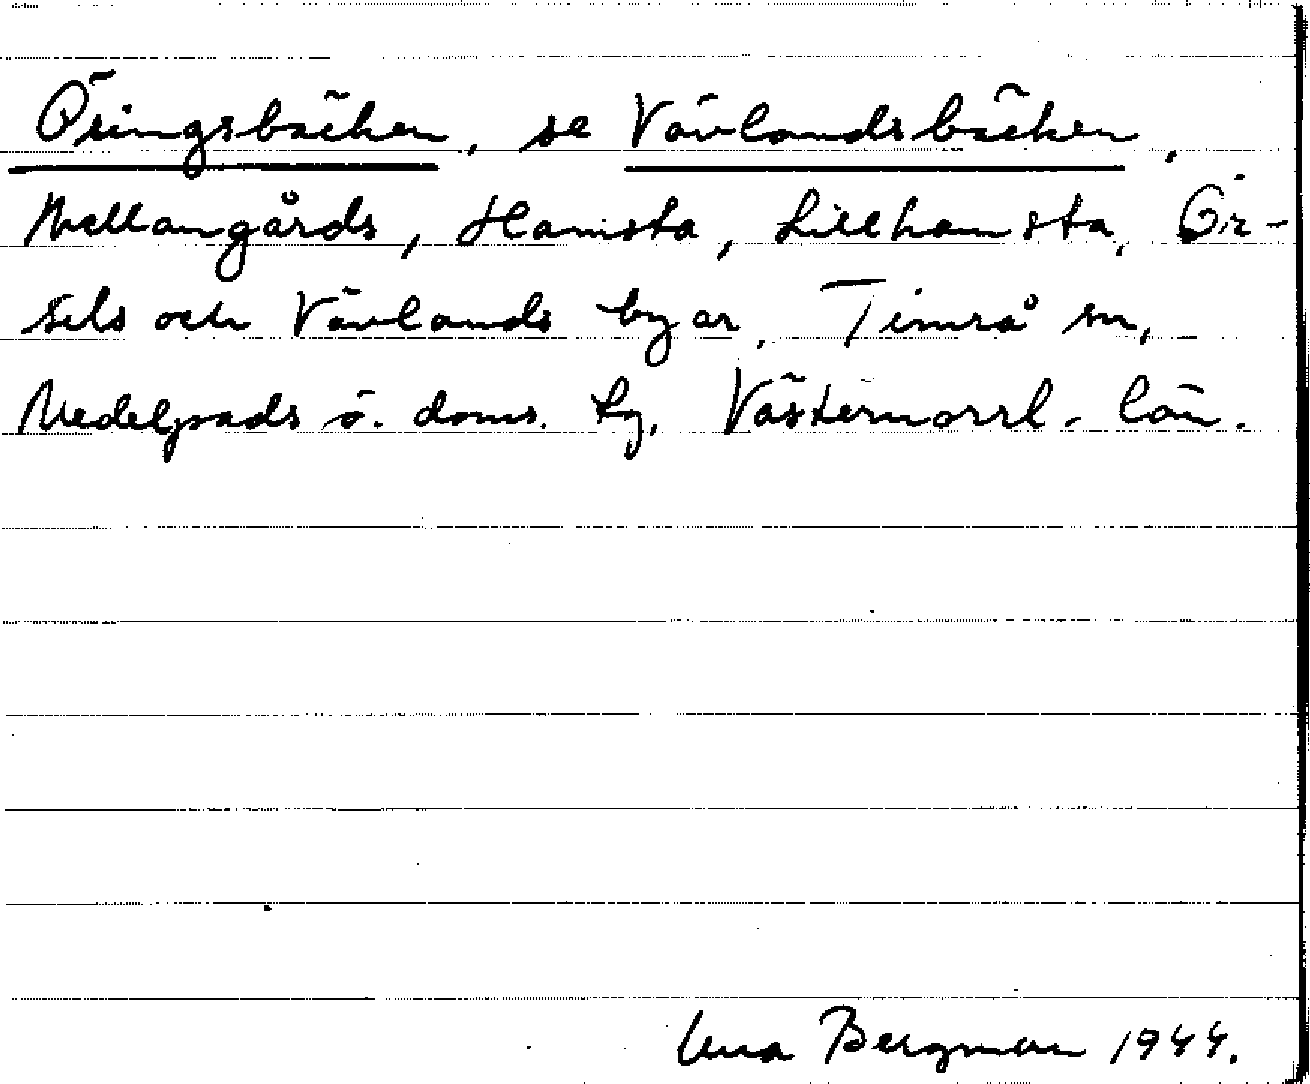 Öringsbäcken, se Vävlandsbäcken.
Mellangårds, Hamsta, Lillhamsta, Ör-
sils och Vävlands byar, Timrå sn,
Medelpads ö. doms. tg, Västernorrl. län.
Bergman 1944.